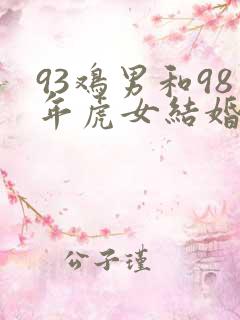 93鸡男和98
年虎女結婚
公子瑾